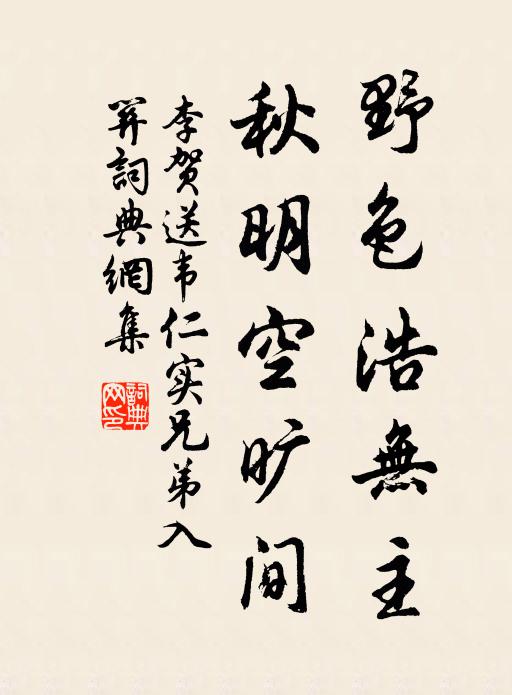 野色浩無主
秋明空旷间
李贺送韦仁实兄弟入
關詞典網集
詞典
网印